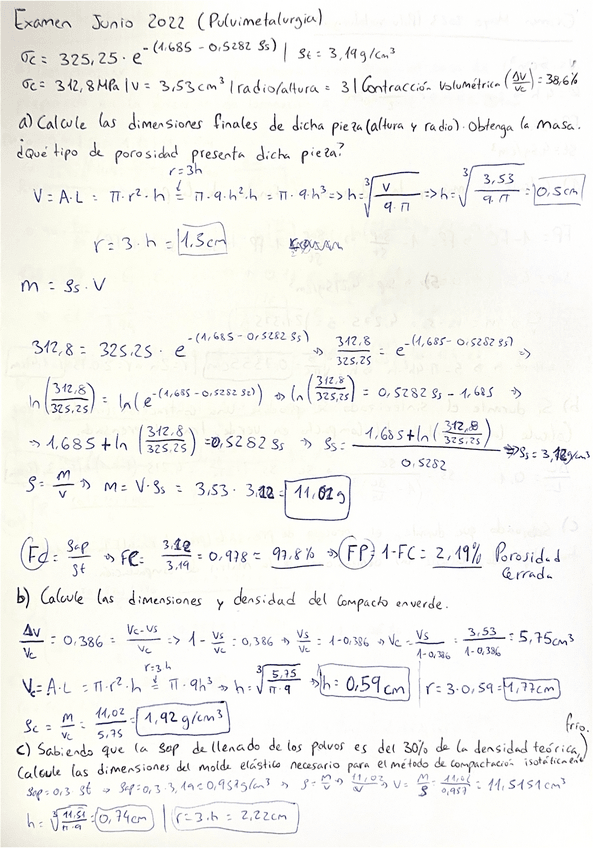 Examen Junio 2022 (Pulvimetalurgia)
σc = 325,25 · e^-(1,685 - 0,5282 ρs) | ρt = 3,19 g/cm³
σc = 312,8 MPa | V = 3,53 cm³ | radio/altura = 3 | Contracción Volumétrica (ΔV/Vc) = 38,6%
a) Calcule las dimensiones finales de dicha pieza (altura y radio). Obtenga la masa.
¿Qué tipo de porosidad presenta dicha pieza?
r=3h
V = A·L = π·r²·h = π·9·h²·h = π·9·h³ => h = ∛(V/9·π) => h = ∛(3,53/9·π) = 0,5cm
r = 3·h = 1.5cm
m = ρs · V
312,8 = 325,25 · e^-(1,685 - 0,5282 ρs) => 312,8/325,25 = e^-(1,685 - 0,5282 ρs) =>
ln(312,8/325,25) = ln(e^-(1,685 - 0,5282 ρs)) => ln(312,8/325,25) = 0,5282 ρs - 1,685 =>
=> 1.685 + ln(312,8/325,25) = 0,5282 ρs => ρs = 1,685 + ln(312,8/325,25) / 0,5282 => ρs = 3,12 g/cm³
ρ = m/v => m = V·ρs = 3,53 · 3,12 = 11,02 g
FC = ρap/ρt => FC = 3,12/3,19 = 0,978 = 97,8% => FP = 1-FC = 2,19% Porosidad
Cerrada
b) Calcule las dimensiones y densidad del compacto en verde.
ΔV/Vc = 0,386 = Vc-Vs/Vc => 1 - Vs/Vc = 0,386 => Vs/Vc = 1-0,386 => Vc = Vs/1-0,386 = 3,53/1-0,386 = 5,75 cm³
r=3h
Vc = A·L = π·r²·h = π·9h³ => h = ∛(5,75/π·9) => h = 0,59 cm | r = 3·0,59 = 1,77cm
ρc = m/Vc = 11,02/5,75 = 1,92 g/cm³
c) Sabiendo que la ρap de llenado de los polvos es del 30% de la densidad teórica,
Calcule las dimensiones del molde elástico necesario para el método de compactación isotática en frío.
ρap = 0,3 · ρt => ρap = 0,3 · 3,19 = 0,957 g/cm³ => ρ = m/V => 11,02/V => V = m/ρ = 11,02/0,957 = 11,5151 cm³
h = ∛(11,51/π·9) = 0,74cm | r = 3·h = 2,22cm